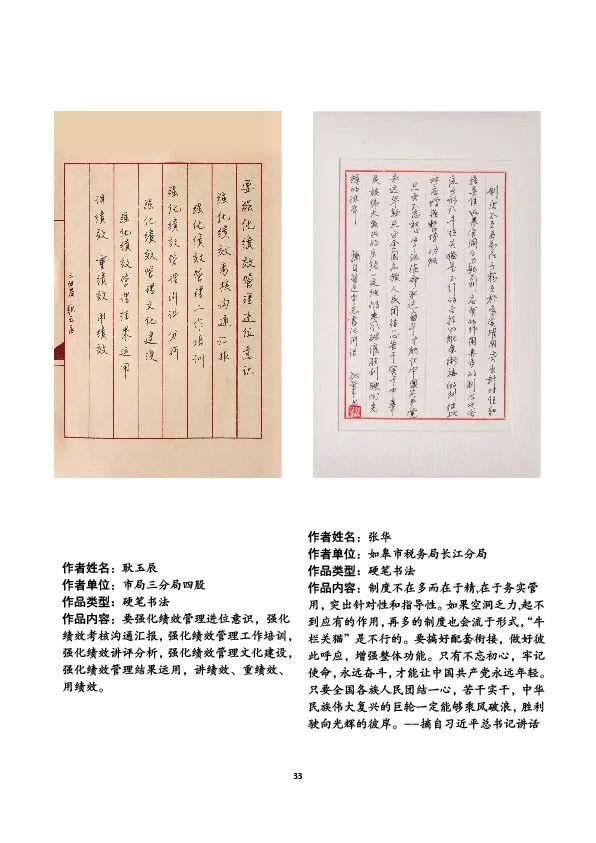 要强化绩效管理进位意识
强化绩效考核沟通汇报
强化绩效管理工作培训
强化绩效管理讲评分析
强化绩效管理文化建设
强化绩效管理结果运用
讲绩效 重绩效 用绩效
制度不在多而在于精在于务实管用突出针对性和
指导性如果空洞乏力起不到应有的作用再多的制度也会
流于形式牛栏关猫是不行的要搞好配套衔接做好彼此
呼应增强整体功能
只有不忘初心牢记使命永远奋斗才能让中国共产党
永远年轻只要全国各族人民团结一心苦干实干中华
民族伟大复兴的巨轮一定能够乘风破浪胜利驶向光
辉的彼岸 摘自习近平总书记讲话
作者姓名：耿玉辰
作者单位：市局三分局四股
作品类型：硬笔书法
作品内容：要强化绩效管理进位意识，强化
绩效考核沟通汇报，强化绩效管理工作培训，
强化绩效讲评分析，强化绩效管理文化建设，
强化绩效管理结果运用，讲绩效、重绩效、
用绩效。
作者姓名：张华
作者单位：如皋市税务局长江分局
作品类型：硬笔书法
作品内容：制度不在多而在于精,在于务实管
用，突出针对性和指导性。如果空洞乏力,起不
到应有的作用，再多的制度也会流于形式，“牛
栏关猫”是不行的。要搞好配套衔接，做好彼
此呼应，增强整体功能。只有不忘初心，牢记
使命，永远奋斗，才能让中国共产党永远年轻。
只要全国各族人民团结一心，苦干实干，中华
民族伟大复兴的巨轮一定能够乘风破浪，胜利
驶向光辉的彼岸。--摘自习近平总书记讲话
33